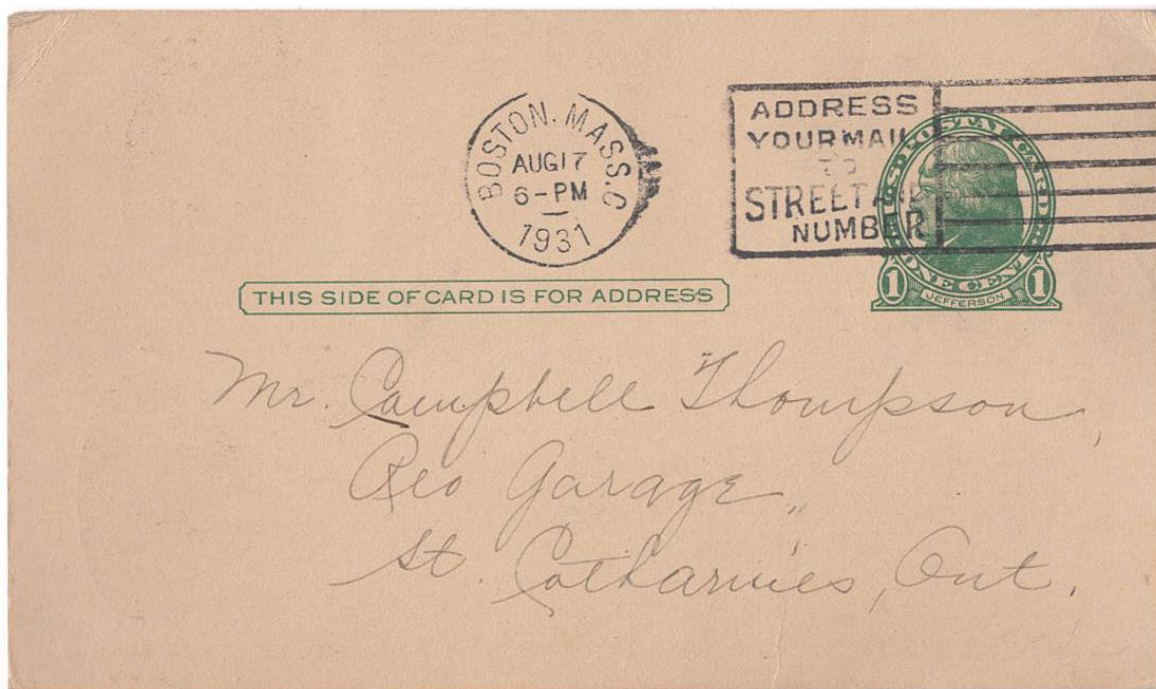 BOSTON, MASS. C
AUG 17
6-PM
1931
ADDRESS
YOUR MAIL
TO
STREET AND
NUMBER
U.S. POSTAL CARD
ONE CENT
1 JEFFERSON 1
THIS SIDE OF CARD IS FOR ADDRESS
Mr. Campbell Thompson,
Reo Garage,
St. Catharines, Ont.